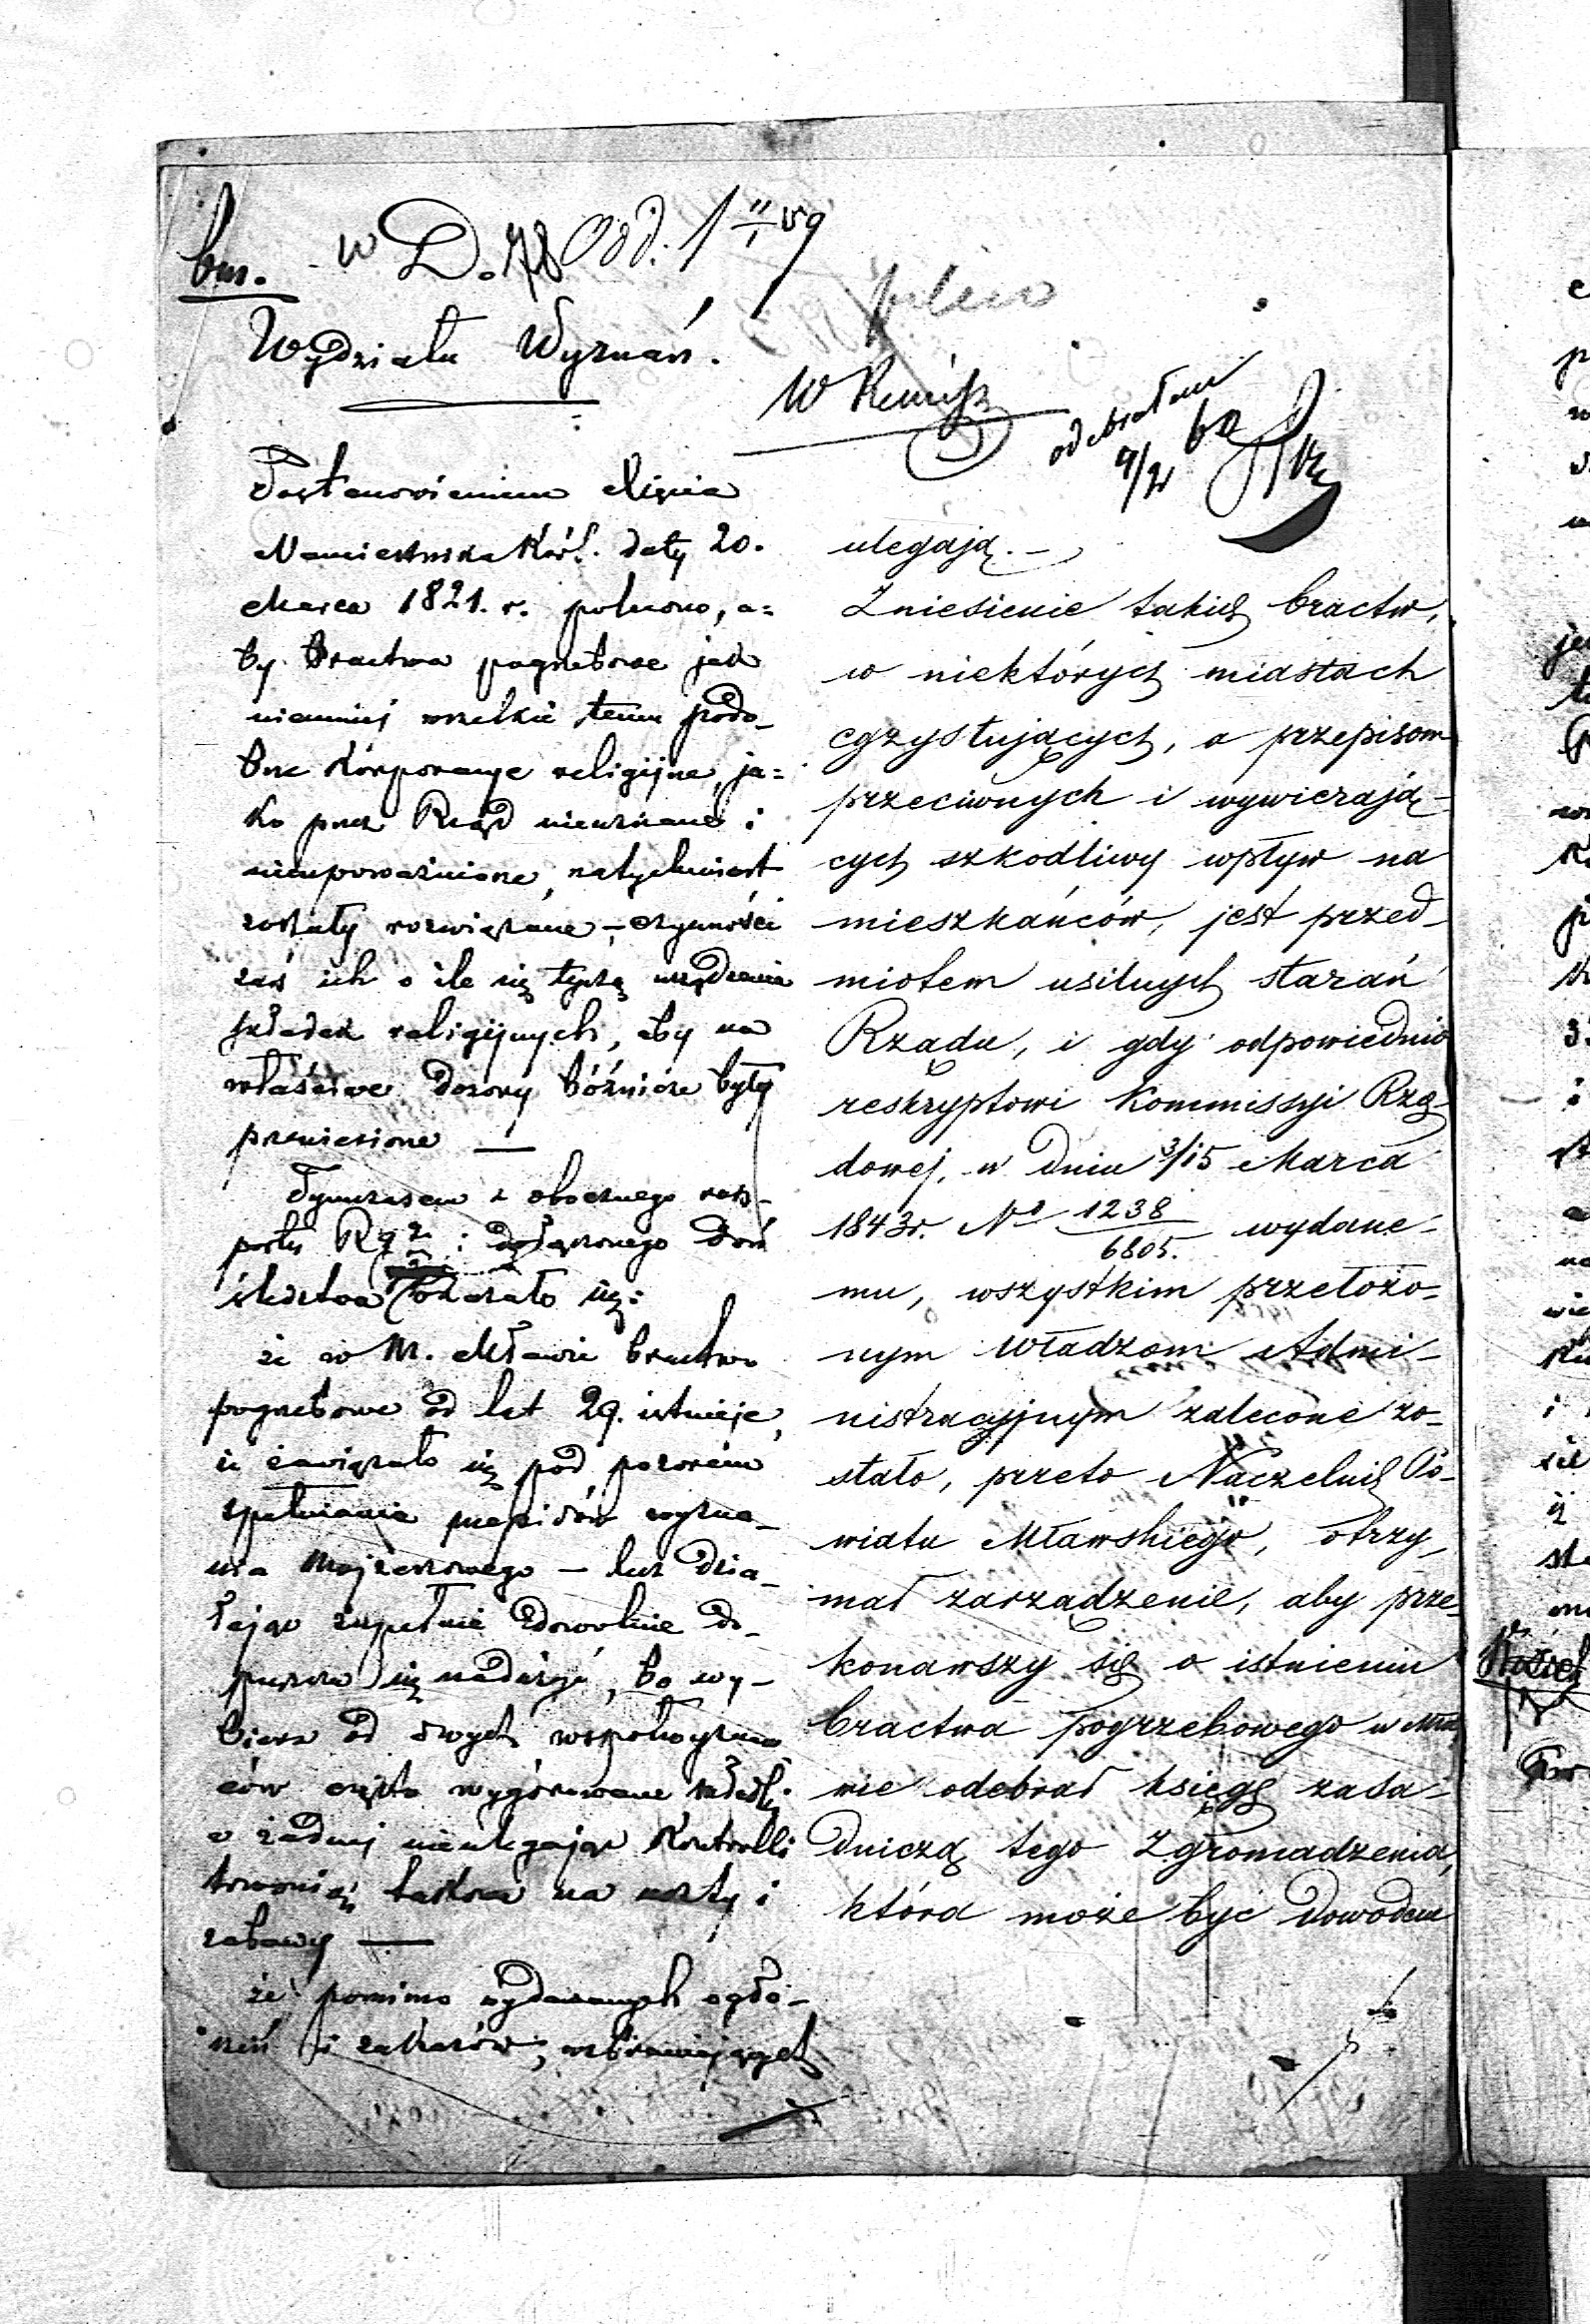 bm. w D. 78 Odd. 1
pilno
Wydziału Wyznań.
odebrałem
9/2 60
Postanowieniem Xięcia
Namiestnika Król. daty 20.
Marca 1821. r. polecono, a=
by Bractwa pogrzebowe jak
niemniej wszelkie temu podo-
bne Korporacye religijne, ja=
ko przez Rząd nieuznane i
nieupoważnione, natychmiast
zostały rozwiązane, – czynności
zaś ich o ile się tyczą urządzenia
składek religijnych, aby na
właściwe dozory bóżnicze były
przeniesione —
Tymczasem z obocznego rap-
portu i dołączonego doń
śledztwa okazało się:
że w M. Mławie bractwo
pogrzebowe od lat 29. istnieje,
że zawiązało się pod pozorem
spełniania przepisów wyzna-
nia Mojżeszowego – lecz dzia-
łając zupełnie dowolnie do-
puszcza się nadużyć, bo wy-
biera od swych współwyznaw
ców często wygórowane składki
a żadnej nieulegając Kontrolli
trwoni je na uczty i
zabawy —
że pomimo wydawanych ogło-
szeń i zakazów, wzbraniających
ulegają. –
Zniesienie takich bractw,
w niektórych miastach
egzystujących, a przepisom
przeciwnych i wywierają-
cych szkodliwy wpływ na
mieszkańców, jest przed-
miotem usilnych starań
Rządu, i gdy odpowiednio
reskryptowi Kommissyi Rzą-
dowej, w dniu 3/15 Marca
1843r. No 1238/6805. wydane-
mu, wszystkim przełożo-
nym Władzom Admi-
nistracyjnym zalecone zo-
stało, przeto Naczelnik Po-
wiatu Mławskiego, otrzy-
mał zarządzenie, aby prze-
konawszy się o istnieniu
bractwa pogrzebowego w Mła-
wie odebrał księgę zasa-
dniczą tego Zgromadzenia,
która może być dowodem